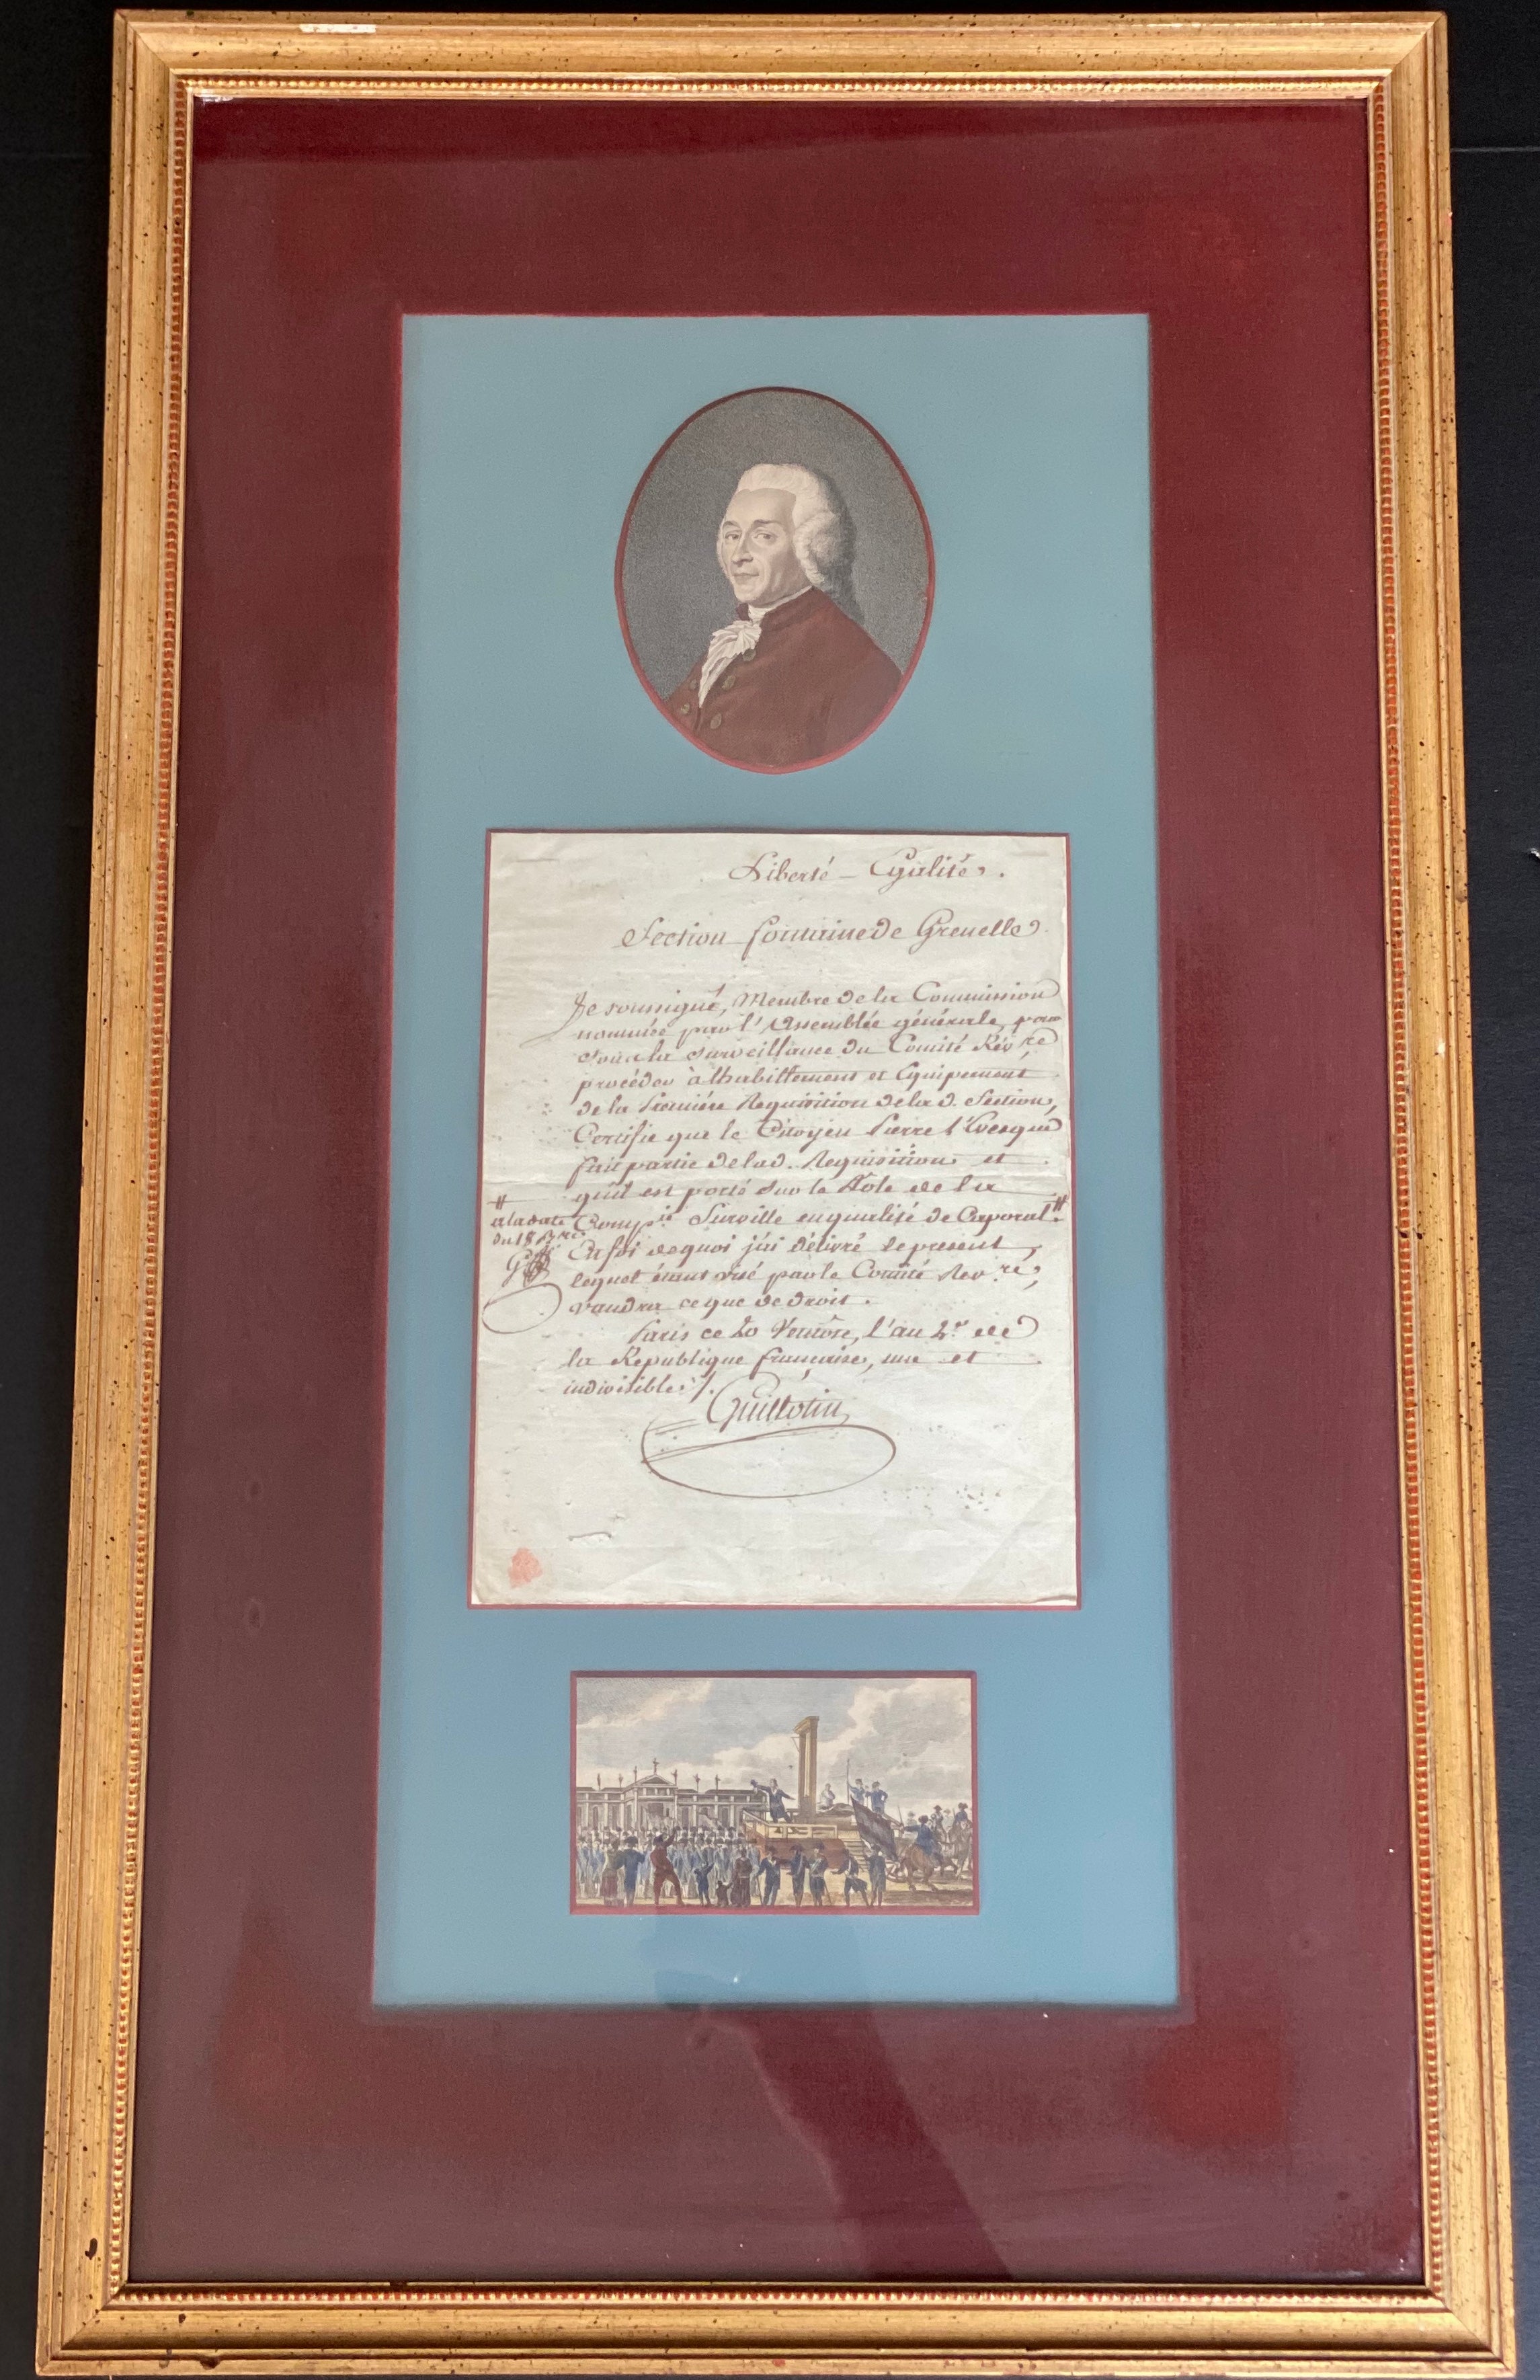 Liberté – Egalité.
Section fontaine de Grenelle
Je soussigné, Membre de la Commission
nommée par l'Assemblée générale, pour
sous la surveillance du Comité Rév.re
procéder à lhabillement et Equipement
de la Premiére Requisition de la d. Section,
Certifie que le Citoyen Pierre l'Evesque
fait partie de lad. Requisition et
qu'il est porté sur le Rôle de la
Comp.ie Surville en qualité de Caporal.#
# a la date
du 18 Bre
En foi de quoi j'ai délivré le present,
lequel étant visé par le Comité Rev.re,
vaudra ce que de droit.
Paris ce 20 Ventôse, l'an 2.e de
la Republique française, une et
indivisible ./.
Guillotin